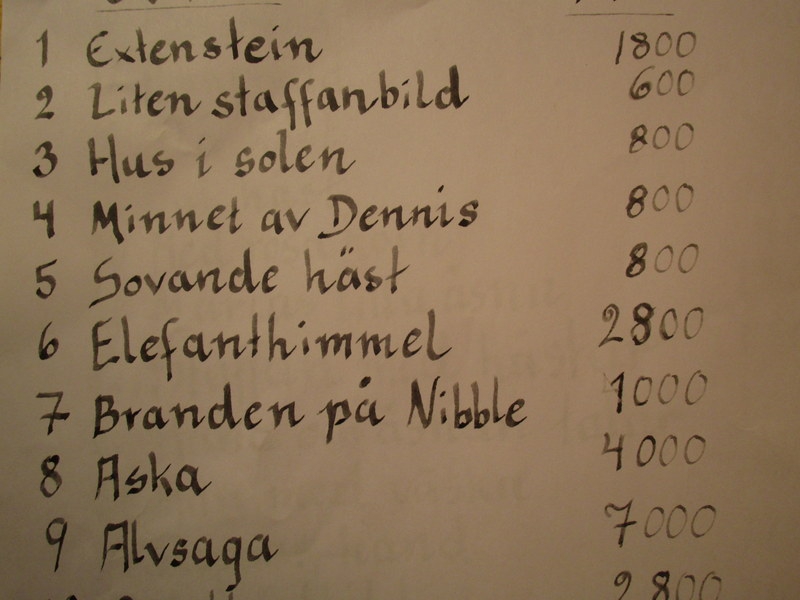 1 Extenstein 1800
2 Liten staffanbild 600
3 Hus i solen 800
4 Minnet av Dennis 800
5 Sovande häst 800
6 Elefanthimmel 2800
7 Branden på Nibble 1000
8 Aska 4000
9 Alvsaga 7000
2800